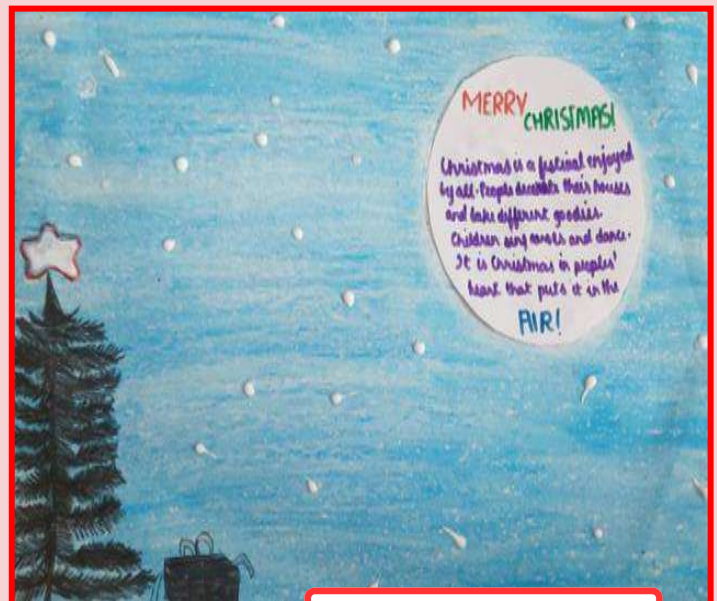 MERRY
CHRISTMAS!
Christmas is a festival enjoyed
by all. People decorate their houses
and bake different goodies.
Children sing carols and dance.
It is Christmas in peoples'
heart that puts it in the
AIR!